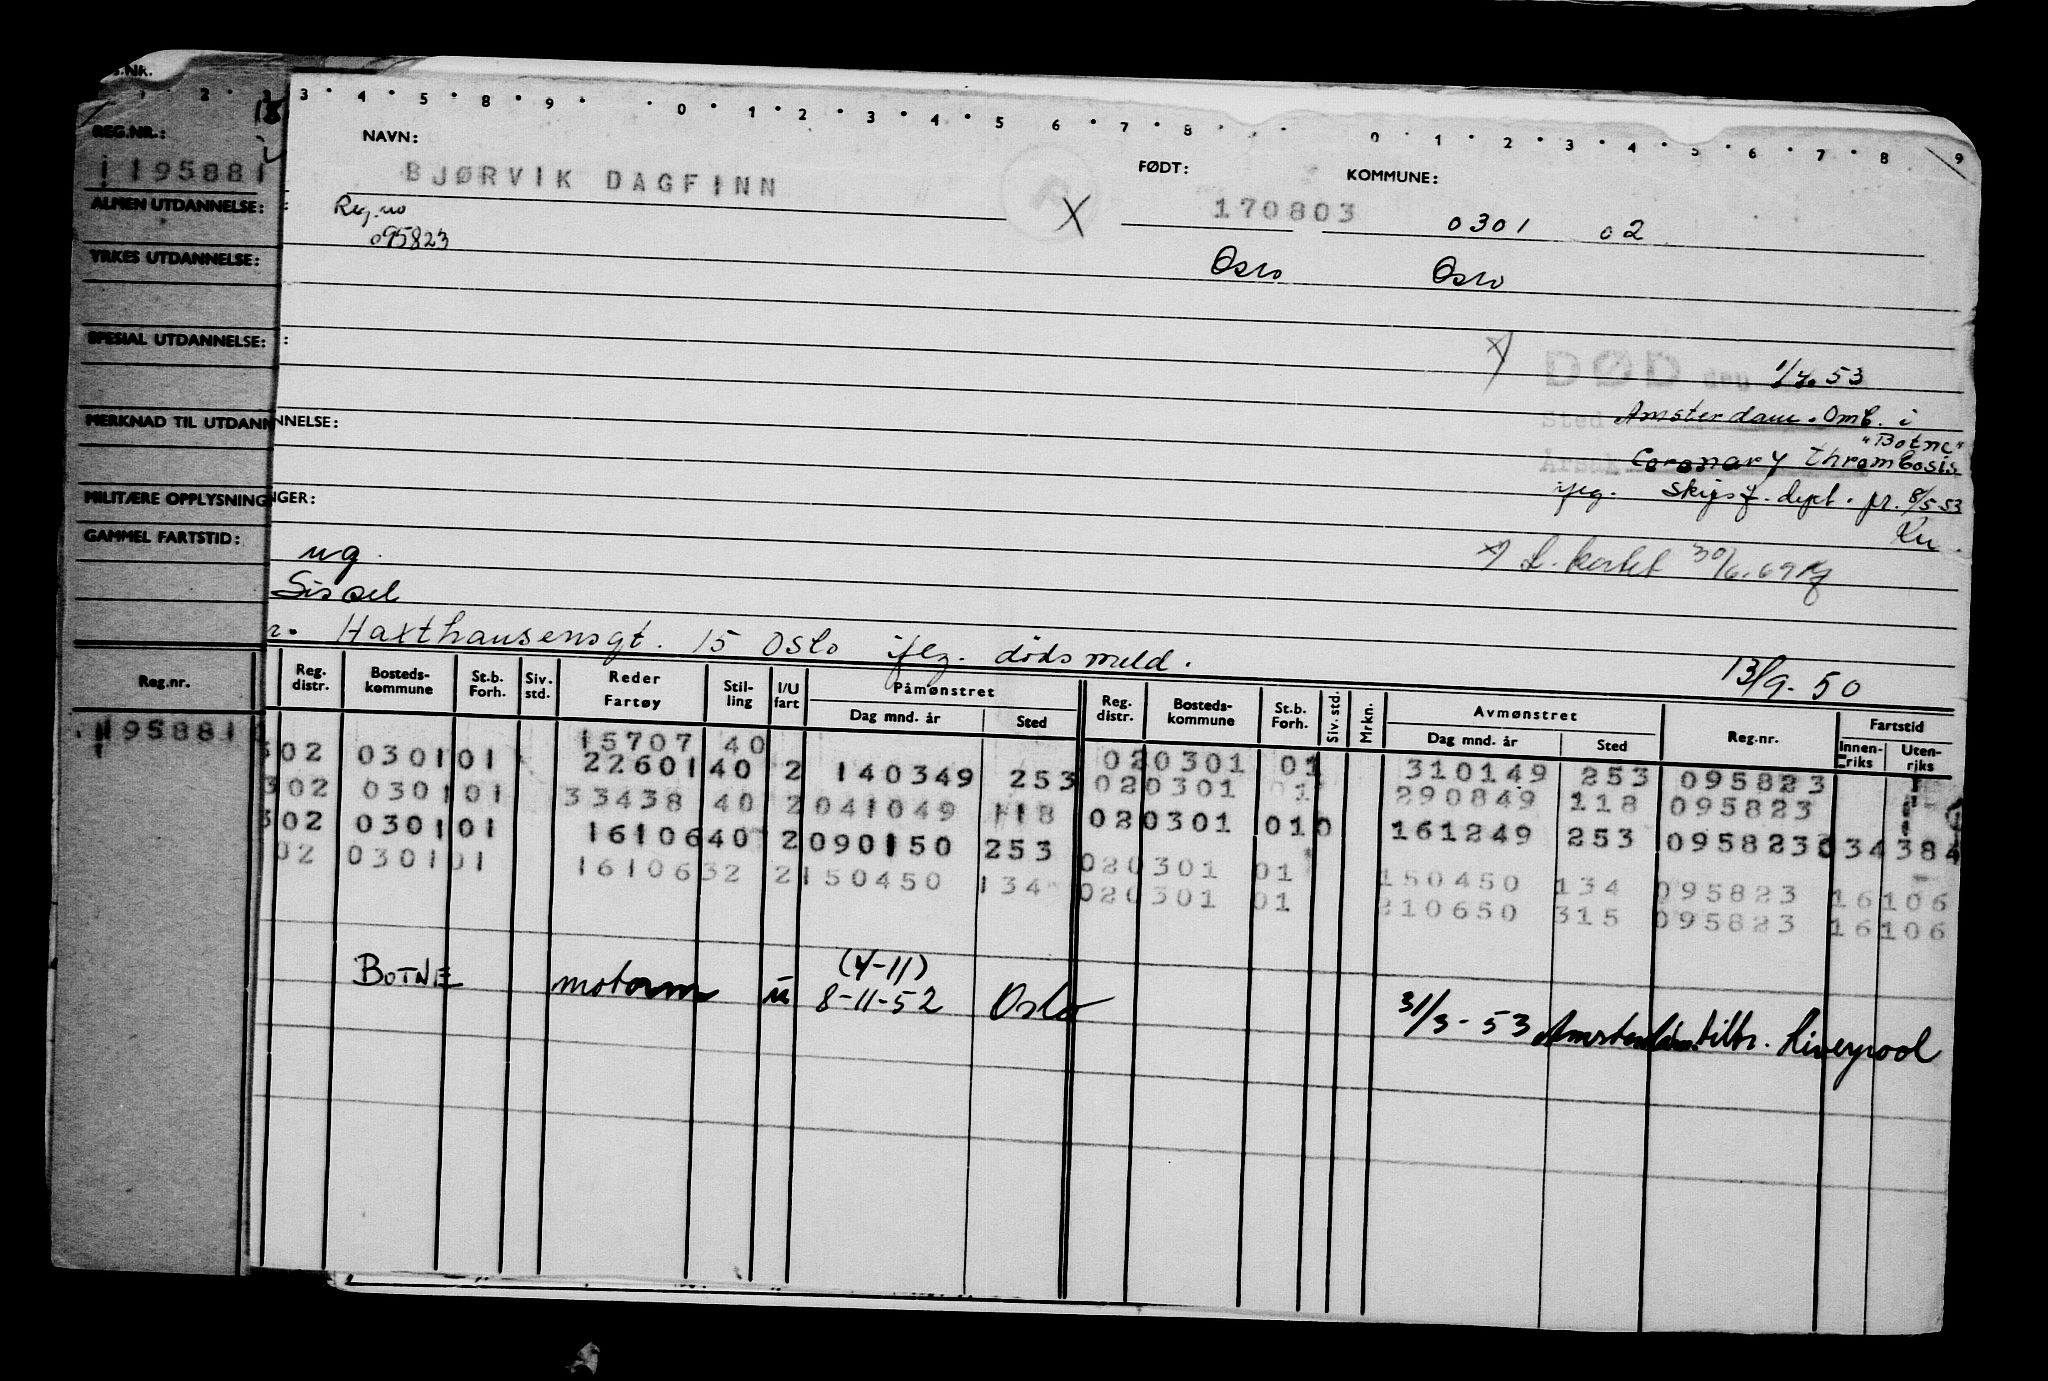 S.NR.
1 • 2 • 3 • 4 • 5 • 8 • 9 • • 0 • 1 • 2 • 3 • 4 • 5 6 • 7 • 8 • • 0 • 1 • 2 • 3 • 4 • 5 • 6 • 7 • 8 9
18
REG.NR.: NAVN: FØDT: KOMMUNE:
195881 BJØRVIK DAGFINN X 170803 0301 02
ALMEN UTDANNELSE: Reg.no
095823 Oslo Oslo
YRKES UTDANNELSE:
SPESIAL UTDANNELSE:
x) DØD den 1/4.53
MERKNAD TIL UTDANNELSE: Sted Amsterdam. Omb. i
"Botne"
Årsak Coronary thrombosis
MILITÆRE OPPLYSNINGER: iflg. Skipsf. dept. pr. 8/5-53
GAMMEL FARTSTID: ug. Ku.
x) L. kortet 30/6.69
Sissel
Haxthausensgt. 15 Oslo iflg. dødsmeld.
13/9-50
Reg.nr. Reg. distr. Bosteds-kommune St.b. Forh. Siv. std. Reder Fartøy Stil-ling I/U fart Påmønstret Dag mnd. år Sted Reg. distr. Bosteds-kommune St.b. Forh. Siv. std. Mrkn. Avmønstret Dag mnd. år Sted Reg.nr. Fartstid Innen-riks Uten-riks
195881 15707 40 020301 01 310149 253 095823
302 0301 01 22601 40 2 140349 253 020301 01 290849 118 095823
302 0301 01 33438 40 2 041049 118 020301 010 161249 253 095823 034 384
302 0301 01 16106 40 2 090150 253 020301 01 150450 134 095823 16106
02 0301 01 16106 32 2 150450 134 020301 01 210650 315 095823 16106
BOTNE motorm u (4-11)
8-11-52 Oslo 31/3-53 Amsterdam tiltr. Liverpool